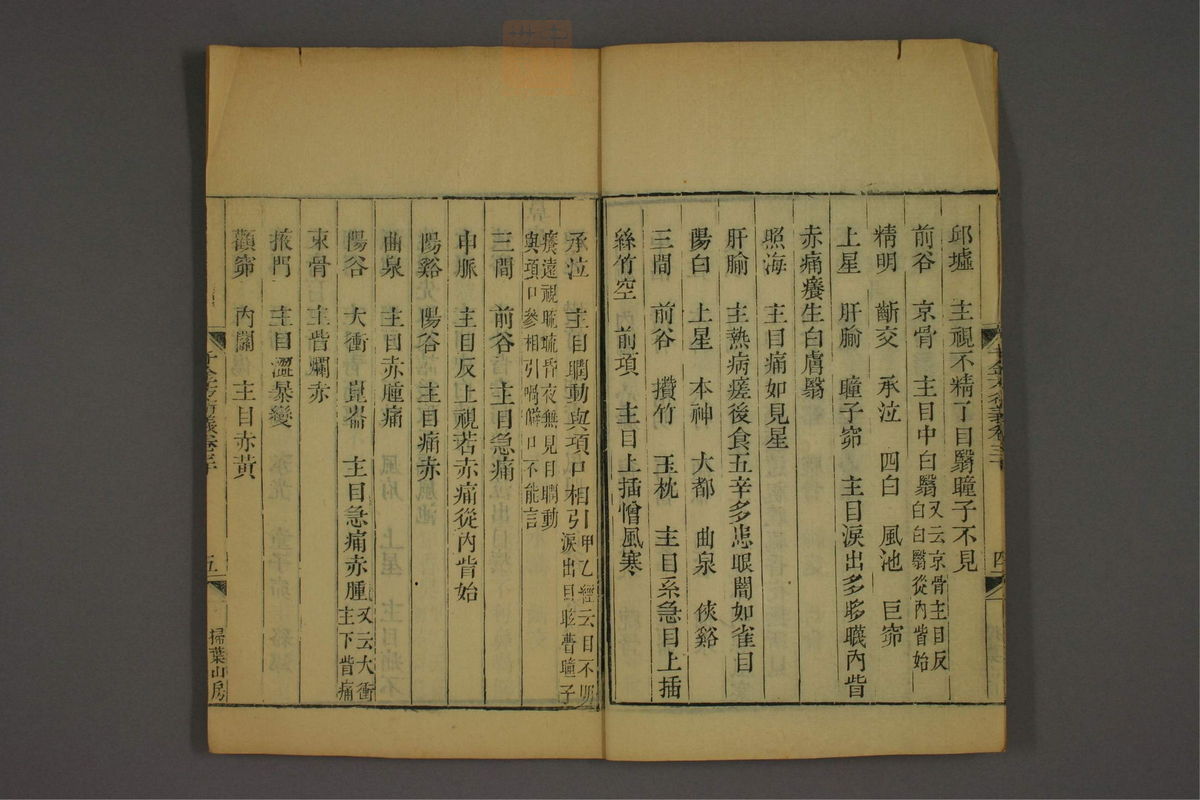 邱墟　主視不精了目翳瞳子不見
前谷　京骨　主目中白翳又云京骨主目反
白白翳從內眥始
精明　齗交　承泣　四白　風池　巨窌
上星　肝腧　瞳子窌　主目淚出多眵䁾內眥
赤痛癢生白膚翳
照海　主目痛如見星
肝腧　主熱病瘥後食五辛多患眼闇如雀目
陽白　上星　本神　大都　曲泉　俠谿
三間　前谷　攢竹　玉枕　主目系急目上插
絲竹空　前項　主目上插憎風寒
承泣　主目瞤動與項口相引甲乙經云目不明
淚出目眵瞢瞳子
癢遠視䀮䀮昏夜無見目瞤動
與項口參相引喎僻口不能言
三間　前谷　主目急痛
申脈　主目反上視若赤痛從內眥始
陽谿　陽谷　主目痛赤
曲泉　主目赤腫痛
陽谷　大衝　崑崙　主目急痛赤腫又云大衝
主下眥痛
束骨　主眥爛赤
掖門　主目澀暴變
顴窌　內關　主目赤黃
四
五
掃葉山房